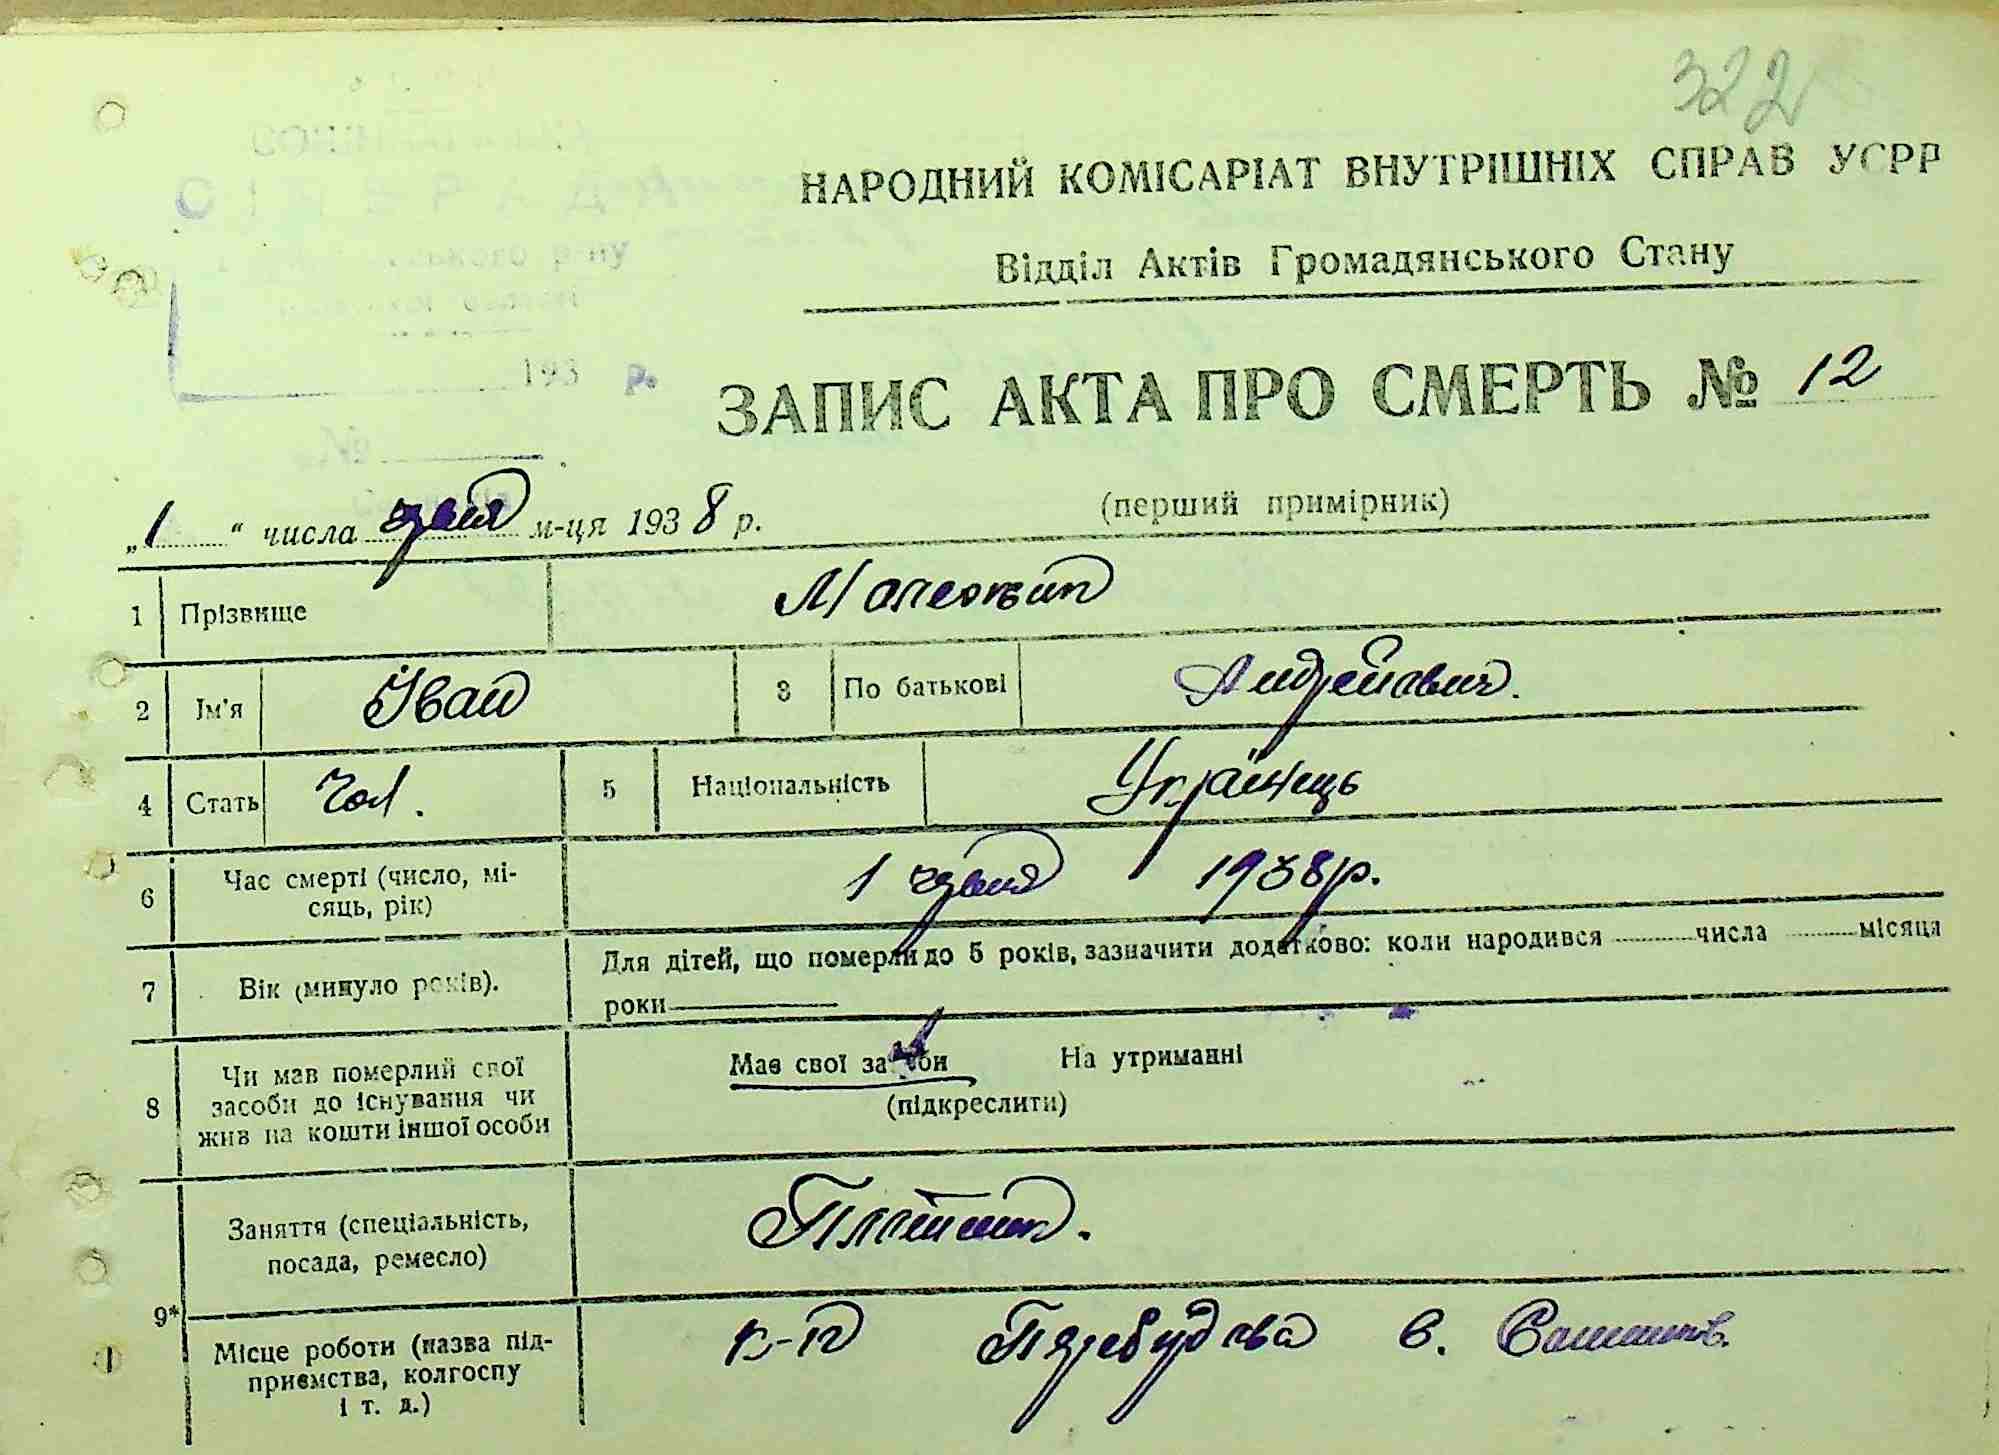 322
НАРОДНИЙ КОМІСАРІАТ ВНУТРІШНІХ СПРАВ УСРР
Відділ Актів Громадянського Стану
193 р.
ЗАПИС АКТА ПРО СМЕРТЬ № 12
№
(перший примірник)
„1“ числа м-ця 1938 р.
1 Прізвище
2 Ім'я Іван 3 По батькові Андрейович.
4 Стать Чол. 5 Національність Українець
6 Час смерті (число, мі-
сяць, рік) 1 1938 р.
7 Вік (минуло років). Для дітей, що померли до 5 років, зазначити додатково: коли народився числа місяця
роки
8 Чи мав померлий свої
засоби до існування чи
жив на кошти іншої особи
Має свої засоби На утриманні
(підкреслити)
9* Заняття (спеціальність,
посада, ремесло)
Місце роботи (назва під-
приємства, колгоспу
і т. д.)
к-п Перебудова с.